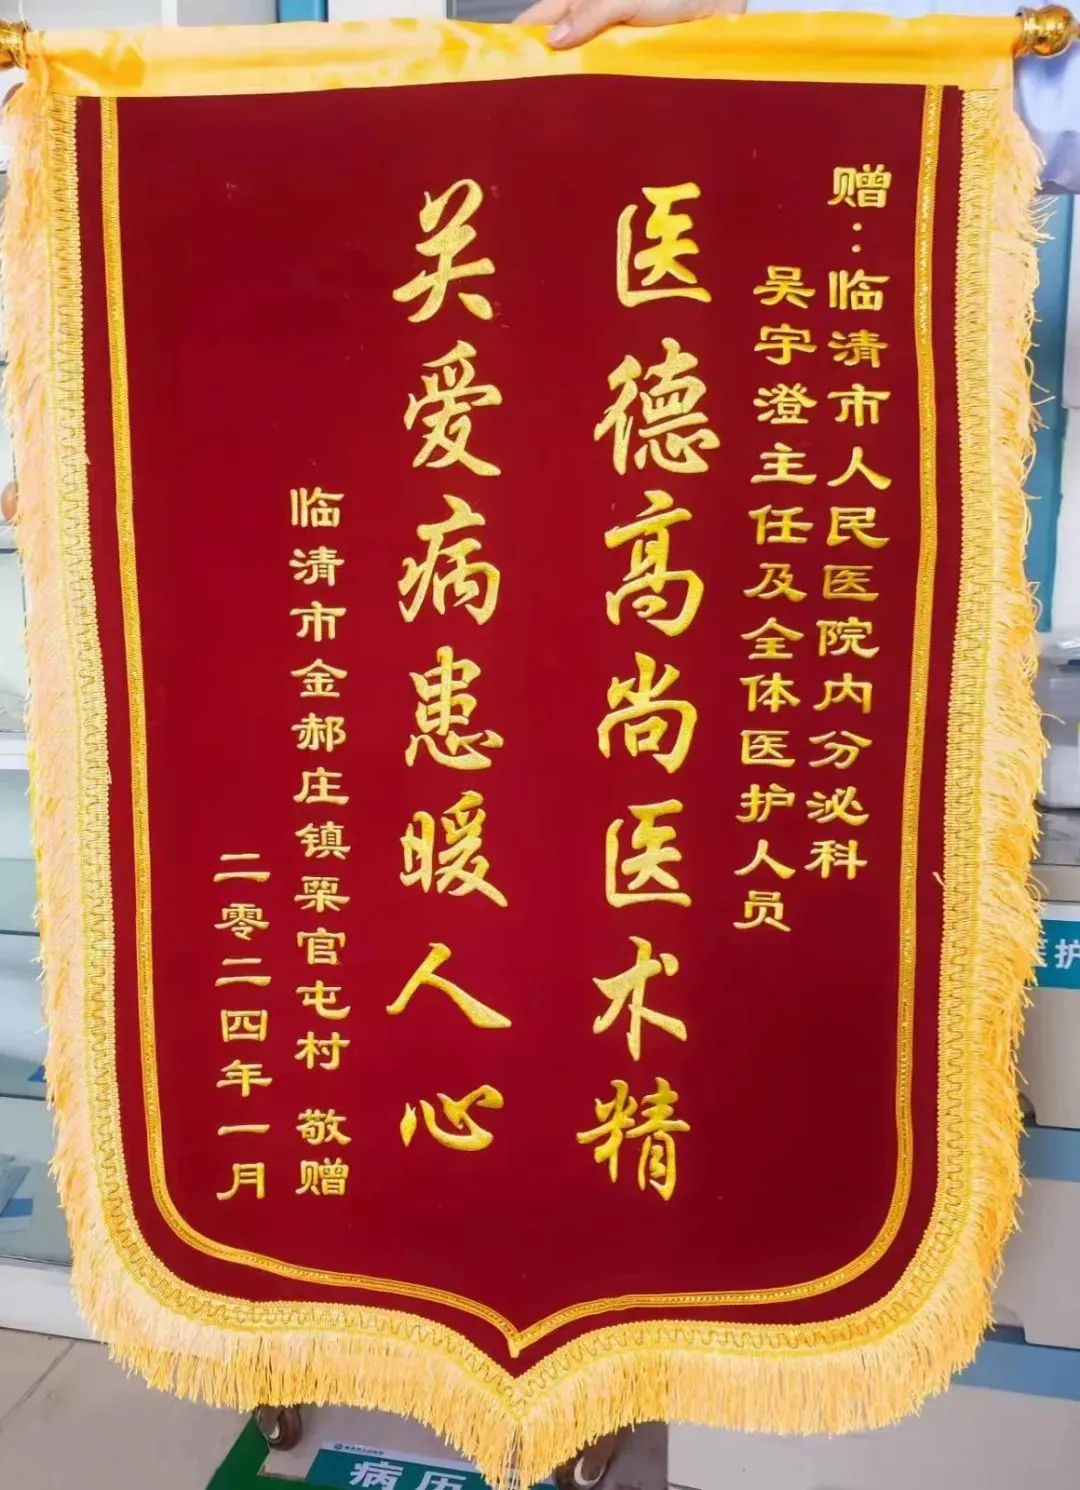 赠：临清市人民医院内分泌科
吴宇澄主任及全体医护人员
医德高尚医术精
关爱病患暖人心
临清市金郝庄镇栗官屯村 敬赠
二零二四年一月
医护
病历